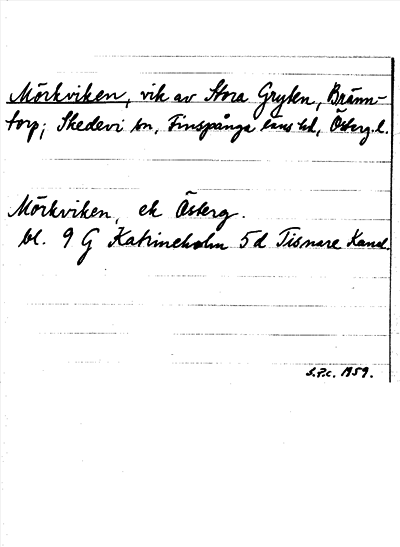 Mörkviken, vik av Stora Gryten, Bränn-
torp; Skedevi sn, Finspånga läns hd, Österg. l.
Mörkviken, ek Österg.
bl. 9 G Katrineholm 5 d Tisnare Kanal.
S.P.C. 1959.